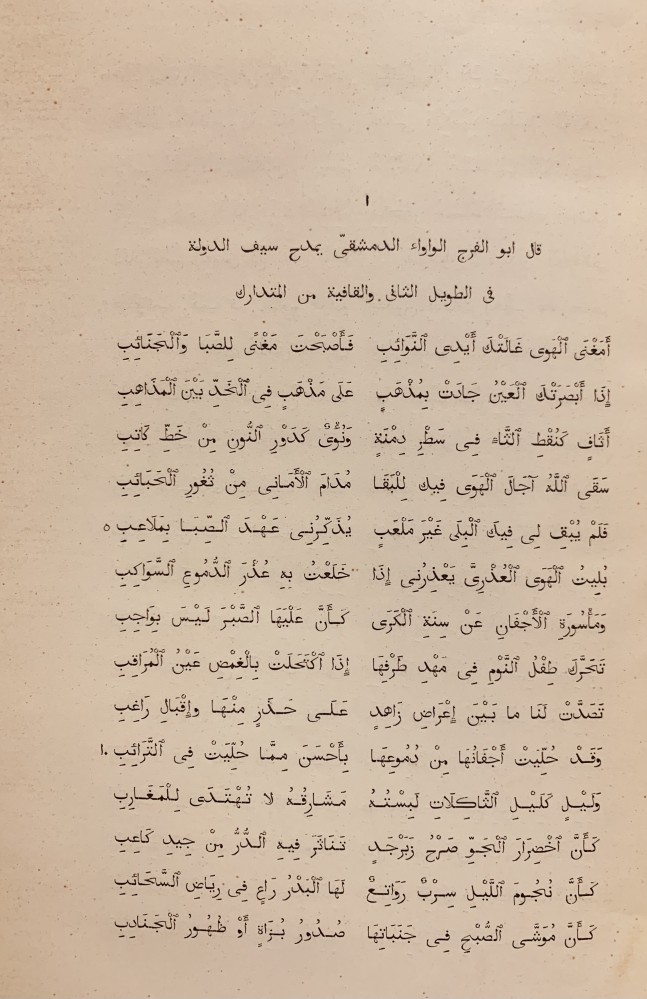 ١
قال ابو الفرج الواواء الدمشقىّ يمدح سيف الدولة
فى الطويل الثانى والقافية من المتدارك
أَمَغْنَى ٱلْهَوَى غَالَتْكَ أَيْدِى ٱلنَّوَائِبِ فَأَصْبَحْتَ مَغْنًى لِلصَّبَا وَٱلْجَنَائِبِ
إِذَا أَبْصَرَتْكَ ٱلْعَيْنُ جَادَتْ بِمُذْهَبٍ عَلَى مَذْهَبٍ فِى ٱلْخَدِّ بَيْنَ ٱلْمَذَاهِبِ
أَثَافٍ كَنُقْطِ ٱلثَّاءِ فِى سَطْرِ دِمْنَةٍ وَنُؤْىٌ كَدَوْرِ ٱلنُّونِ مِنْ خَطِّ كَاتِبِ
سَقَى ٱللَّهُ آجَالَ ٱلْهَوَى فِيكِ لِلْبَقَا مُدَامَ ٱلْأَمَانِى مِنْ ثُغُورِ ٱلْحَبَائِبِ
فَلَمْ يُبْقِ لِى فِيكَ ٱلْبِلَى غَيْرَ مَلْعَبٍ يُذَكِّرُنِى عَهْدَ ٱلصِّبَا بِمَلَاعِبِ ٥
بُلِيتُ ٱلْهَوَى ٱلْعُذْرِىَّ يَعْذِرُنِى إِذَا خَلَعْتُ بِهِ عُذْرَ ٱلدُّمُوعِ ٱلسَّوَاكِبِ
وَمَأْسُورَةِ ٱلْأَجْفَانِ عَنْ سِنَةِ ٱلْكَرَى كَأَنَّ عَلَيْهَا ٱلصَّبْرَ لَيْسَ بِوَاجِبِ
تَحَرَّكَ طِفْلُ ٱلنَّوْمِ فِى مَهْدِ طَرْفِهَا إِذَا ٱكْتَحَلَتْ بِٱلْغِمْضِ عَيْنُ ٱلْمُرَاقِبِ
تَصَدَّتْ لَنَا ما بَيْنَ إِعْرَاضِ زَاهِدٍ عَلَى حَذَرٍ مِنْهَا وإِقْبَالِ رَاغِبِ
وَقَدْ حُلِّيَتْ أَجْفَانُهَا مِنْ دُمُوعِهَا بِأَحْسَنَ مِمَّا حُلِّيَتْ فِى ٱلتَّرَائِبِ ١٠
وَلَيْلٍ كَلَيْلِ ٱلثَّاكِلَاتِ لَبِسْتُهُ مَشَارِقُهُ لا تُهْتَدَى لِلْمَغَارِبِ
كَأَنَّ ٱخْضِرَارَ ٱلْجَوِّ صَرْحُ زَبَرْجَدٍ تَنَاثَرَ فِيهِ ٱلدُّرُّ مِنْ جِيدِ كَاعِبِ
كَأَنَّ نُجُومَ ٱللَّيْلِ سِرْبٌ رَوَاتِعٌ لَهَا ٱلْبَدْرُ رَاعٍ فِى رِيَاضِ ٱلسَّحَائِبِ
كَأَنَّ مُوَشَّى ٱلصُّبْحِ فِى جَنَبَاتِهَا صُدُورُ بُزَاةٍ أَوْ ظُهُورُ ٱلْجَنَادِبِ